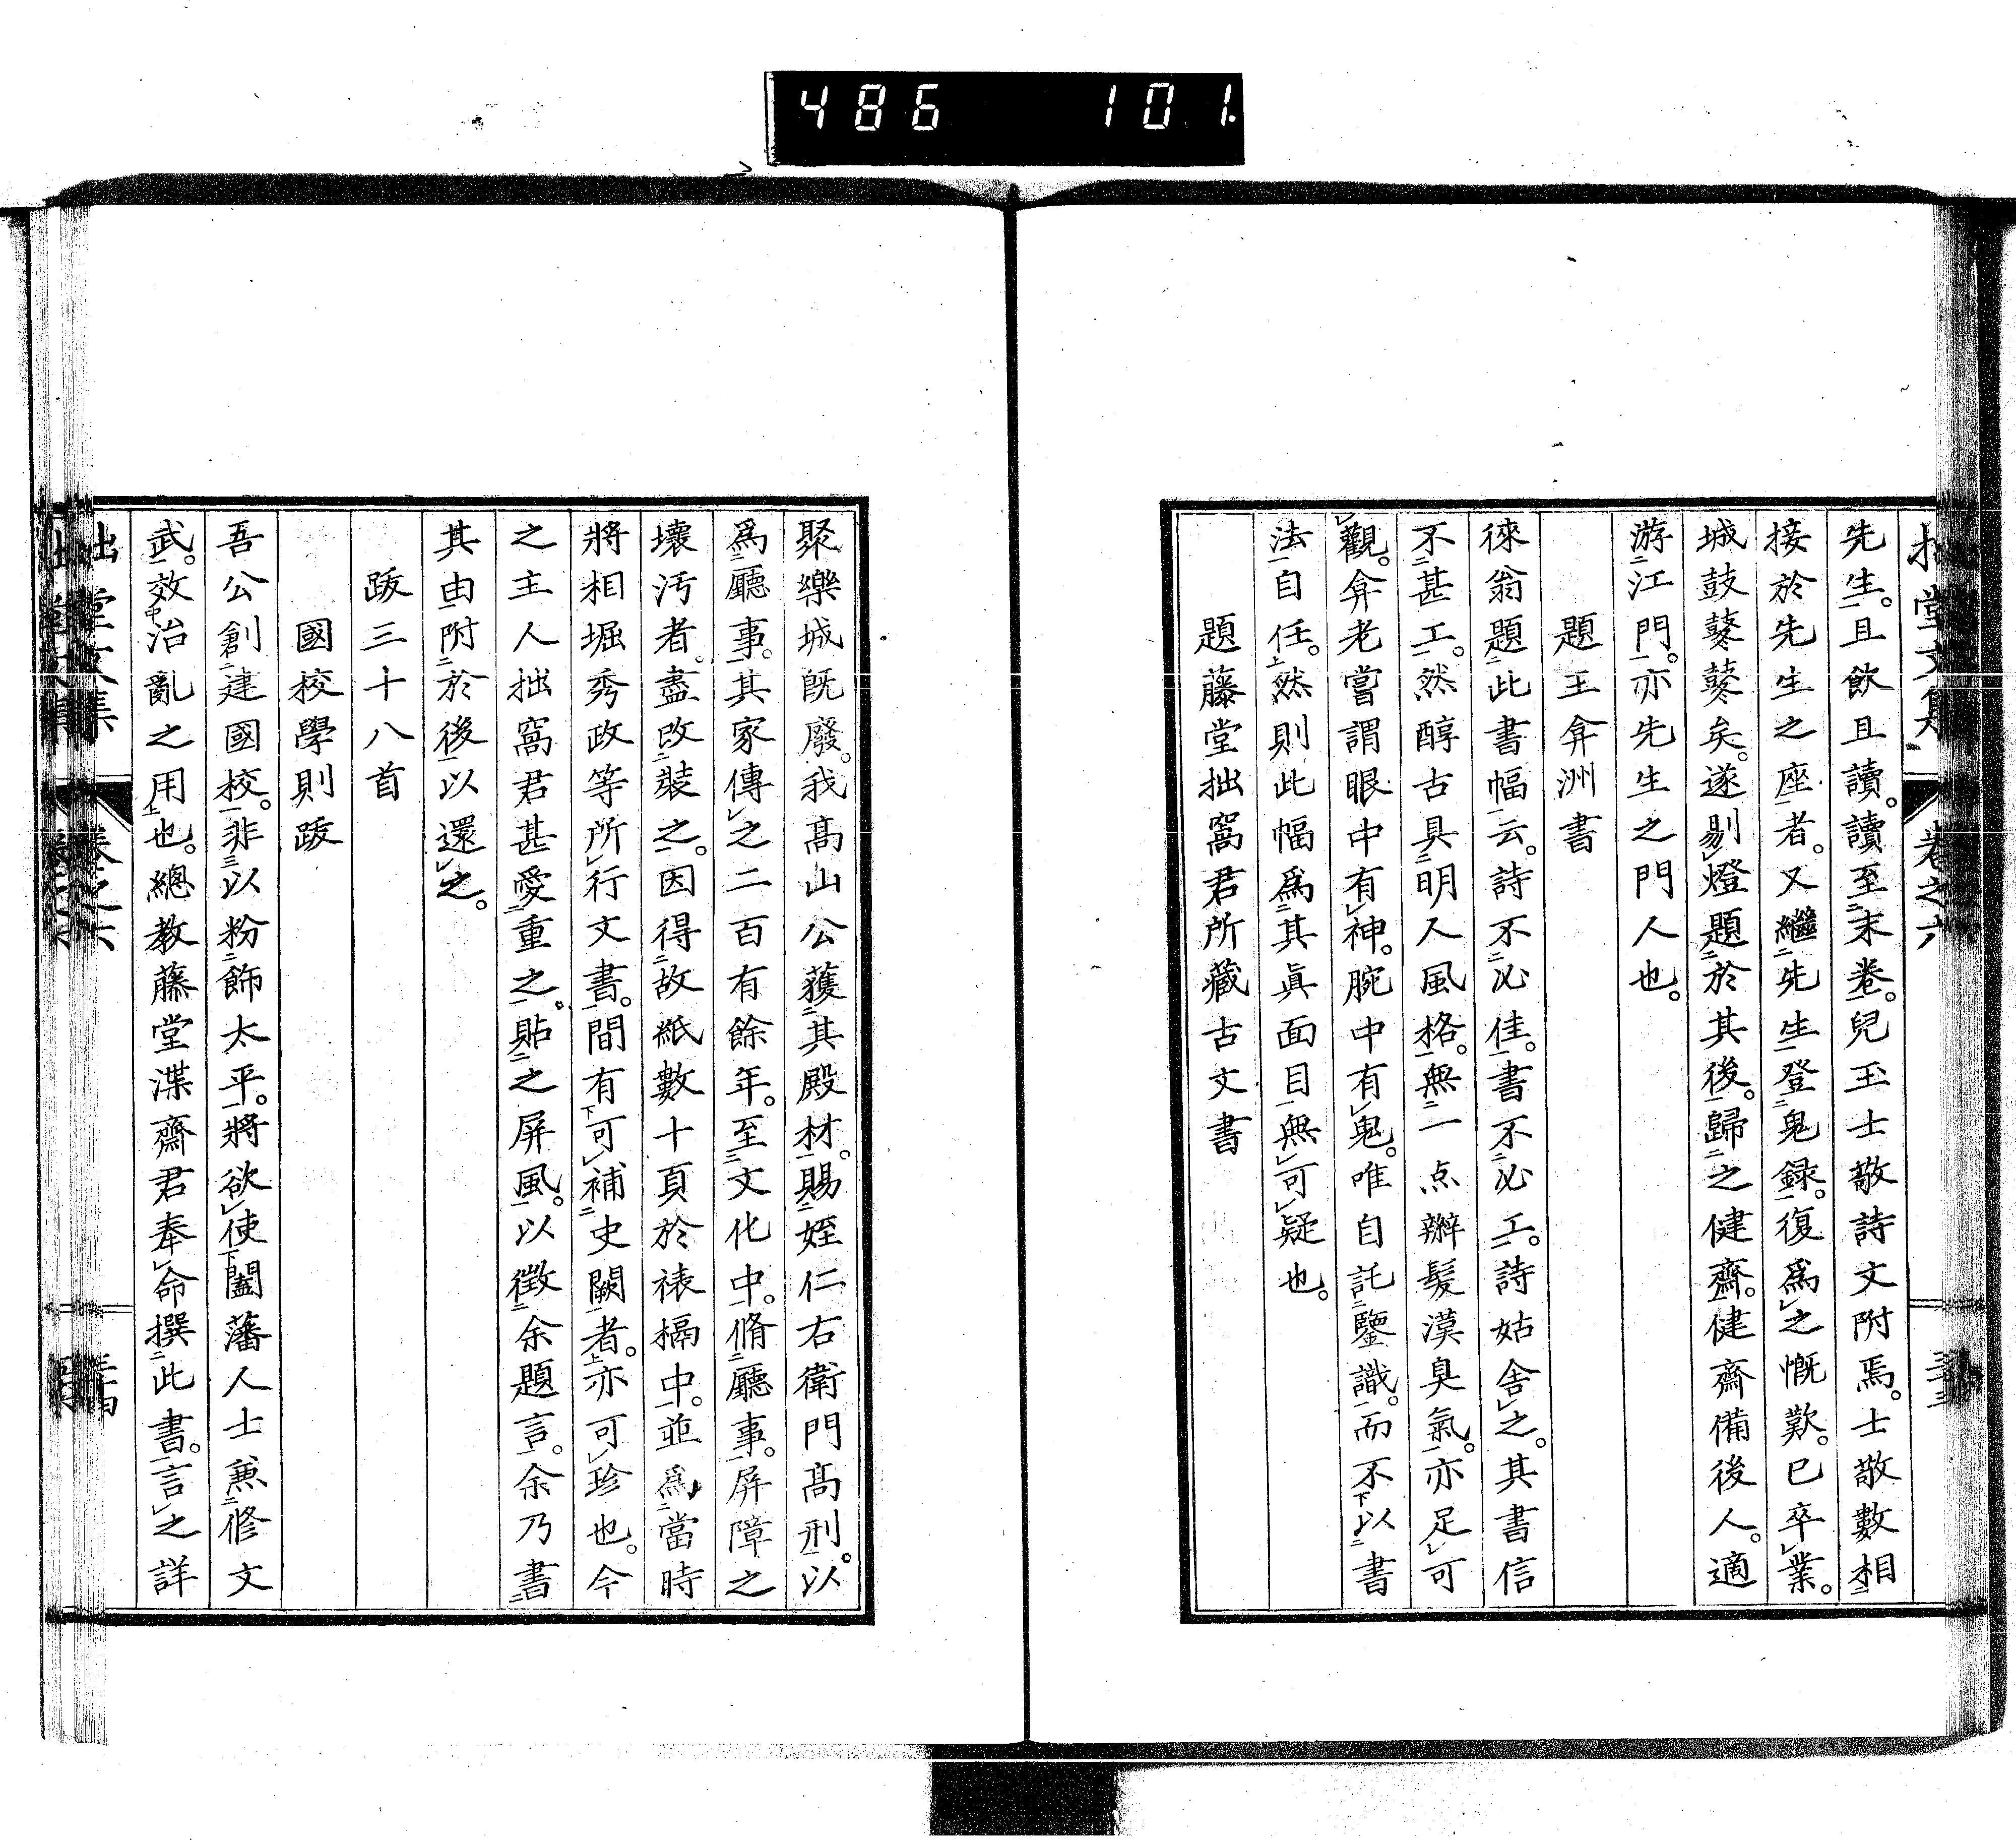 486 101.
拙堂文集 卷之六
先生。且飲且讀。讀至末卷。兒玉士敬詩文附焉。士敬數相
接於先生之座者。又繼先生登鬼録。復爲之慨歎。已卒業。
城鼓鼕鼕矣。遂剔燈題於其後。歸之健齋。健齋備後人。適
游江門。亦先生之門人也。
題王弇洲書
徠翁題此書幅云。詩不必佳。書不必工。詩姑舍之。其書信
不甚工。然醇古具明人風格。無一点辮髮漠臭氣。亦足可
觀。弇老嘗謂眼中有神。腕中有鬼。唯自託鑒識。而不以書
法自任。然則此幅爲其眞面目無可疑也。
題藤堂拙窩君所藏古文書
聚樂城旣廢。我髙山公獲其殿材。賜姪仁右衛門髙刑。以
爲廳事。其家傳之二百有餘年。至文化中。脩廳事。屏障之
壞汚者。盡改裝之。因得故紙數十頁於裱槅中。並爲當時
將相堀秀政等所行文書。間有可補史闕者。亦可珍也。今
之主人拙窩君甚愛重之。貼之屏風。以徵余題言。余乃書
其由附於後以還之。
跋三十八首
國校學則跋
吾公創建國校。非以粉飾太平。將欲使闔藩人士兼修文
武。效治亂之用也。總教藤堂渫齋君奉命撰此書。言之詳
拙堂文集 卷之六